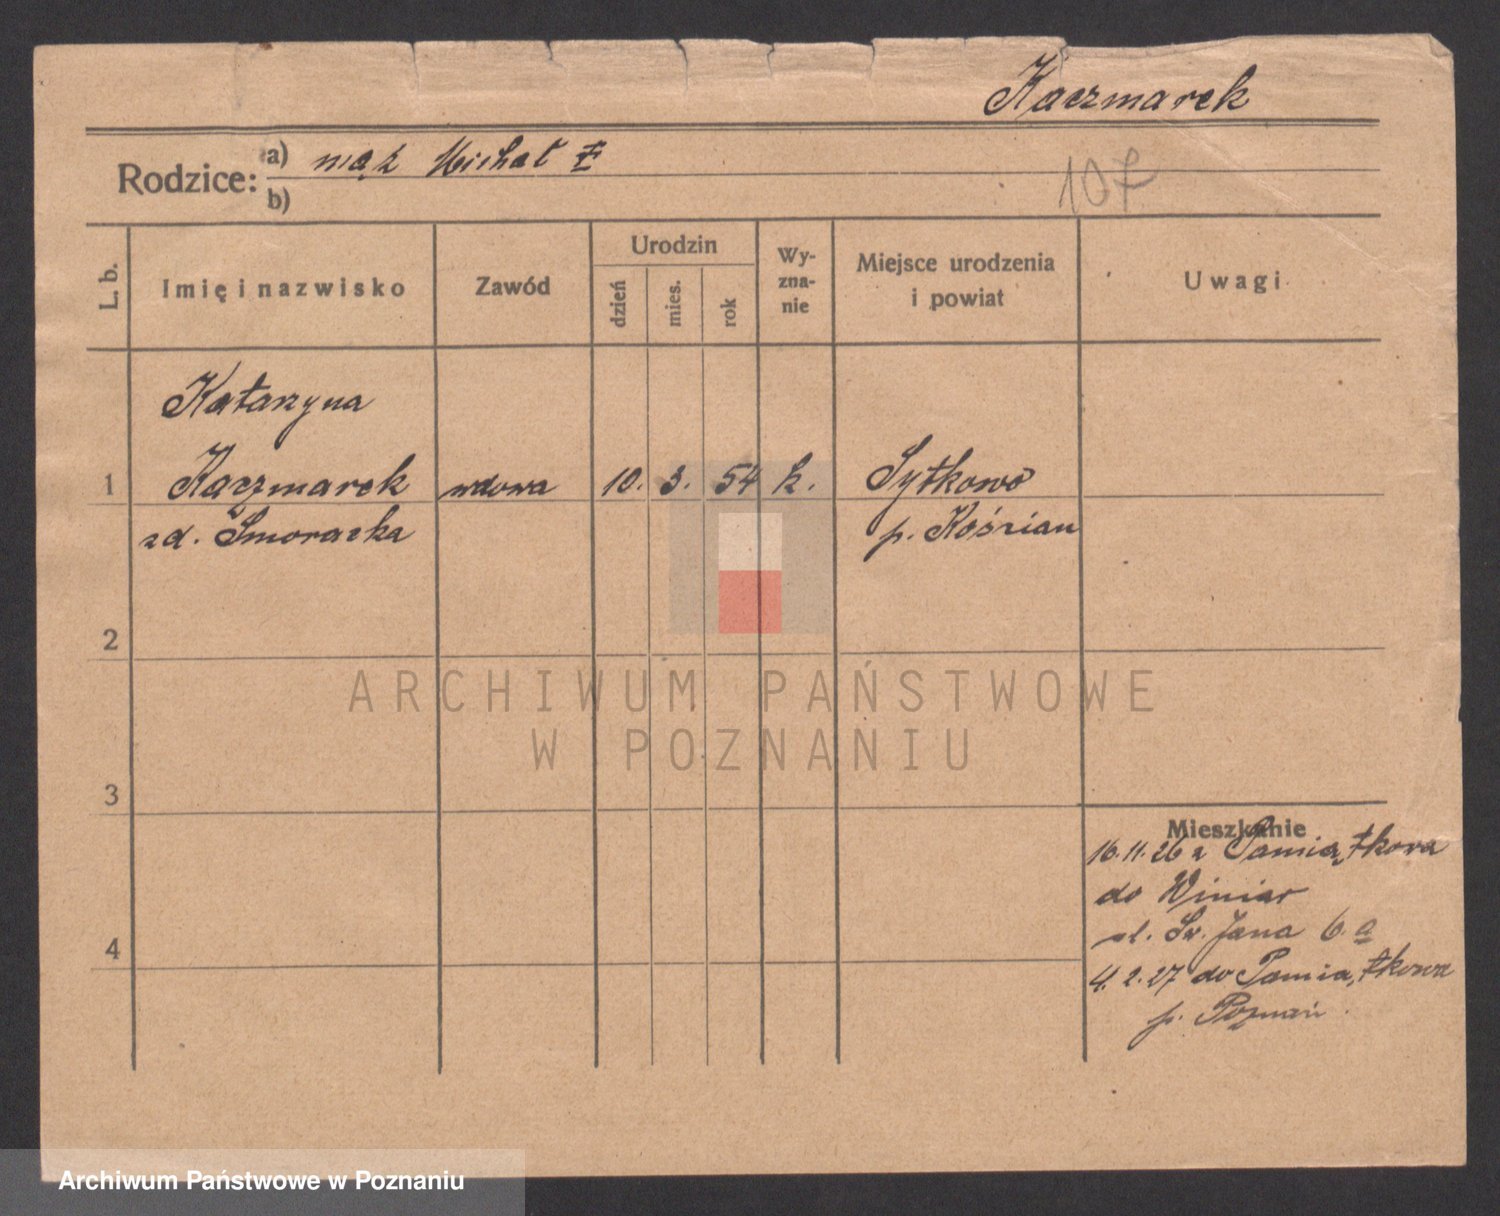 Kaczmarek
Rodzice: a) mąż Michał ‡
b)
107
L. b.
Imię i nazwisko
Zawód
Urodzin
dzień
mies.
rok
Wy-
zna-
nie
Miejsce urodzenia
i powiat
Uwagi
Katarzyna
1 Kaczmarek wdowa 10. 3. 54 k. Sytkowo
zd. Smoraczka p. Kościan
2
3
4
ARCHIWUM PAŃSTWOWE
W POZNANIU
Mieszkanie
16.11.26 z Pamiątkowa
do Winiar
ul. Św. Jana 6.a
4.2.27 do Pamiątkowa
p. Poznań.
Archiwum Państwowe w Poznaniu